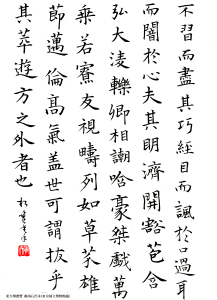 不習而盡其巧經目而諷於口過耳
而闇於心夫其明濟開豁苞含
弘大淩轢卿相謿哈豪桀戯萬
乗若寮友視疇列如草芥雄
節邁倫髙氣盖世可謂拔乎
其萃遊方之外者也